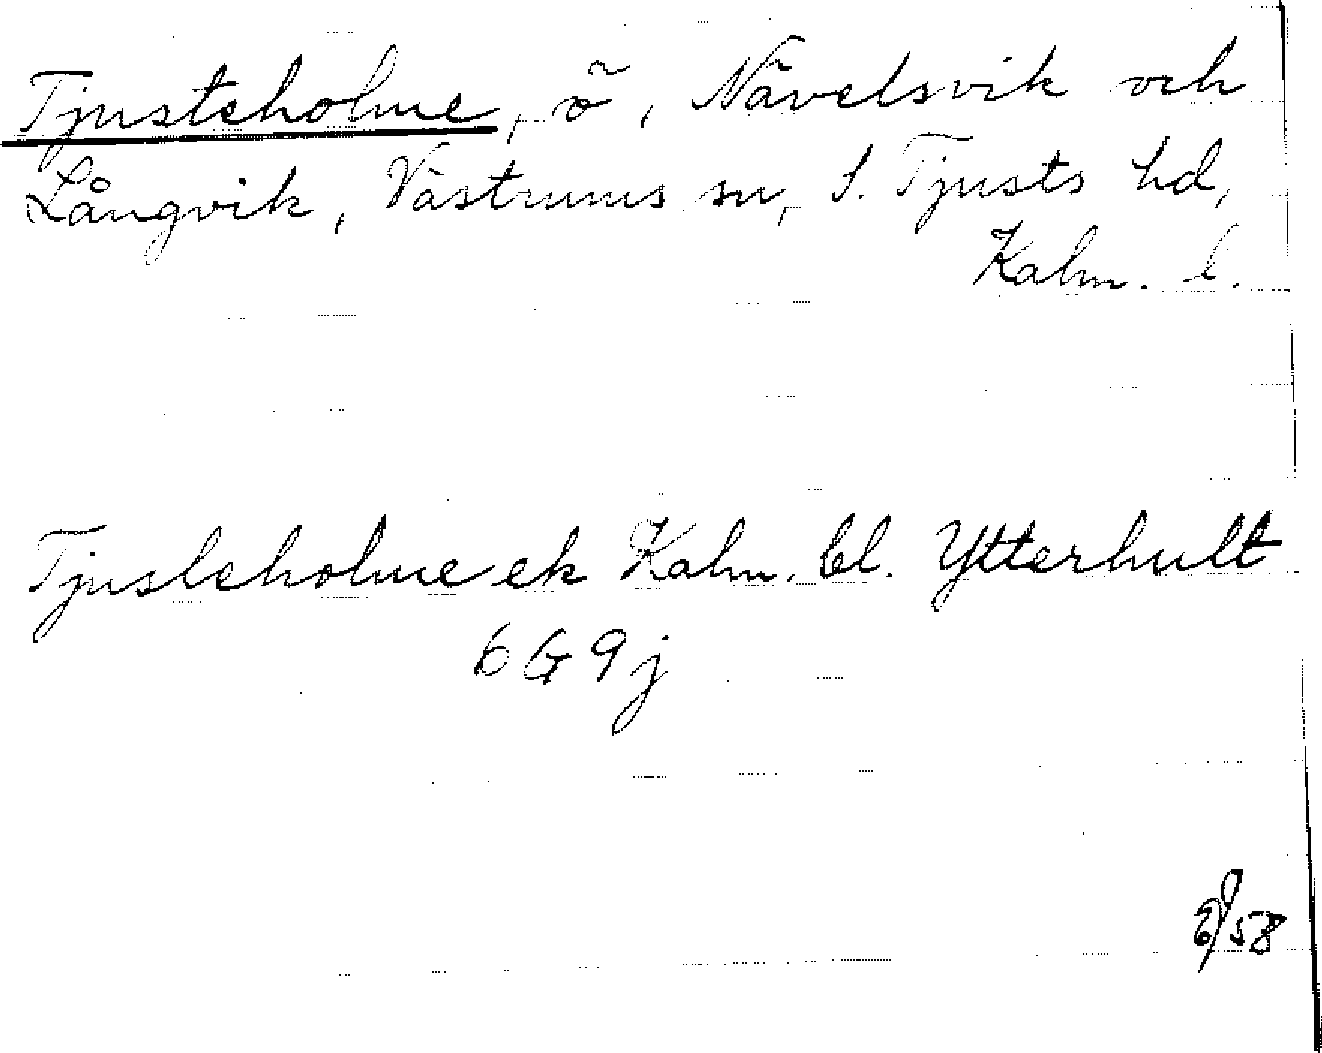 Tjusteholme, ö, Nävelsvik och
Långvik, Västrums sn, S. Tjusts hd,
Kalm. l.
Tjusteholme ek Kalm. bl. Ytterhult
6 G 9 j
58